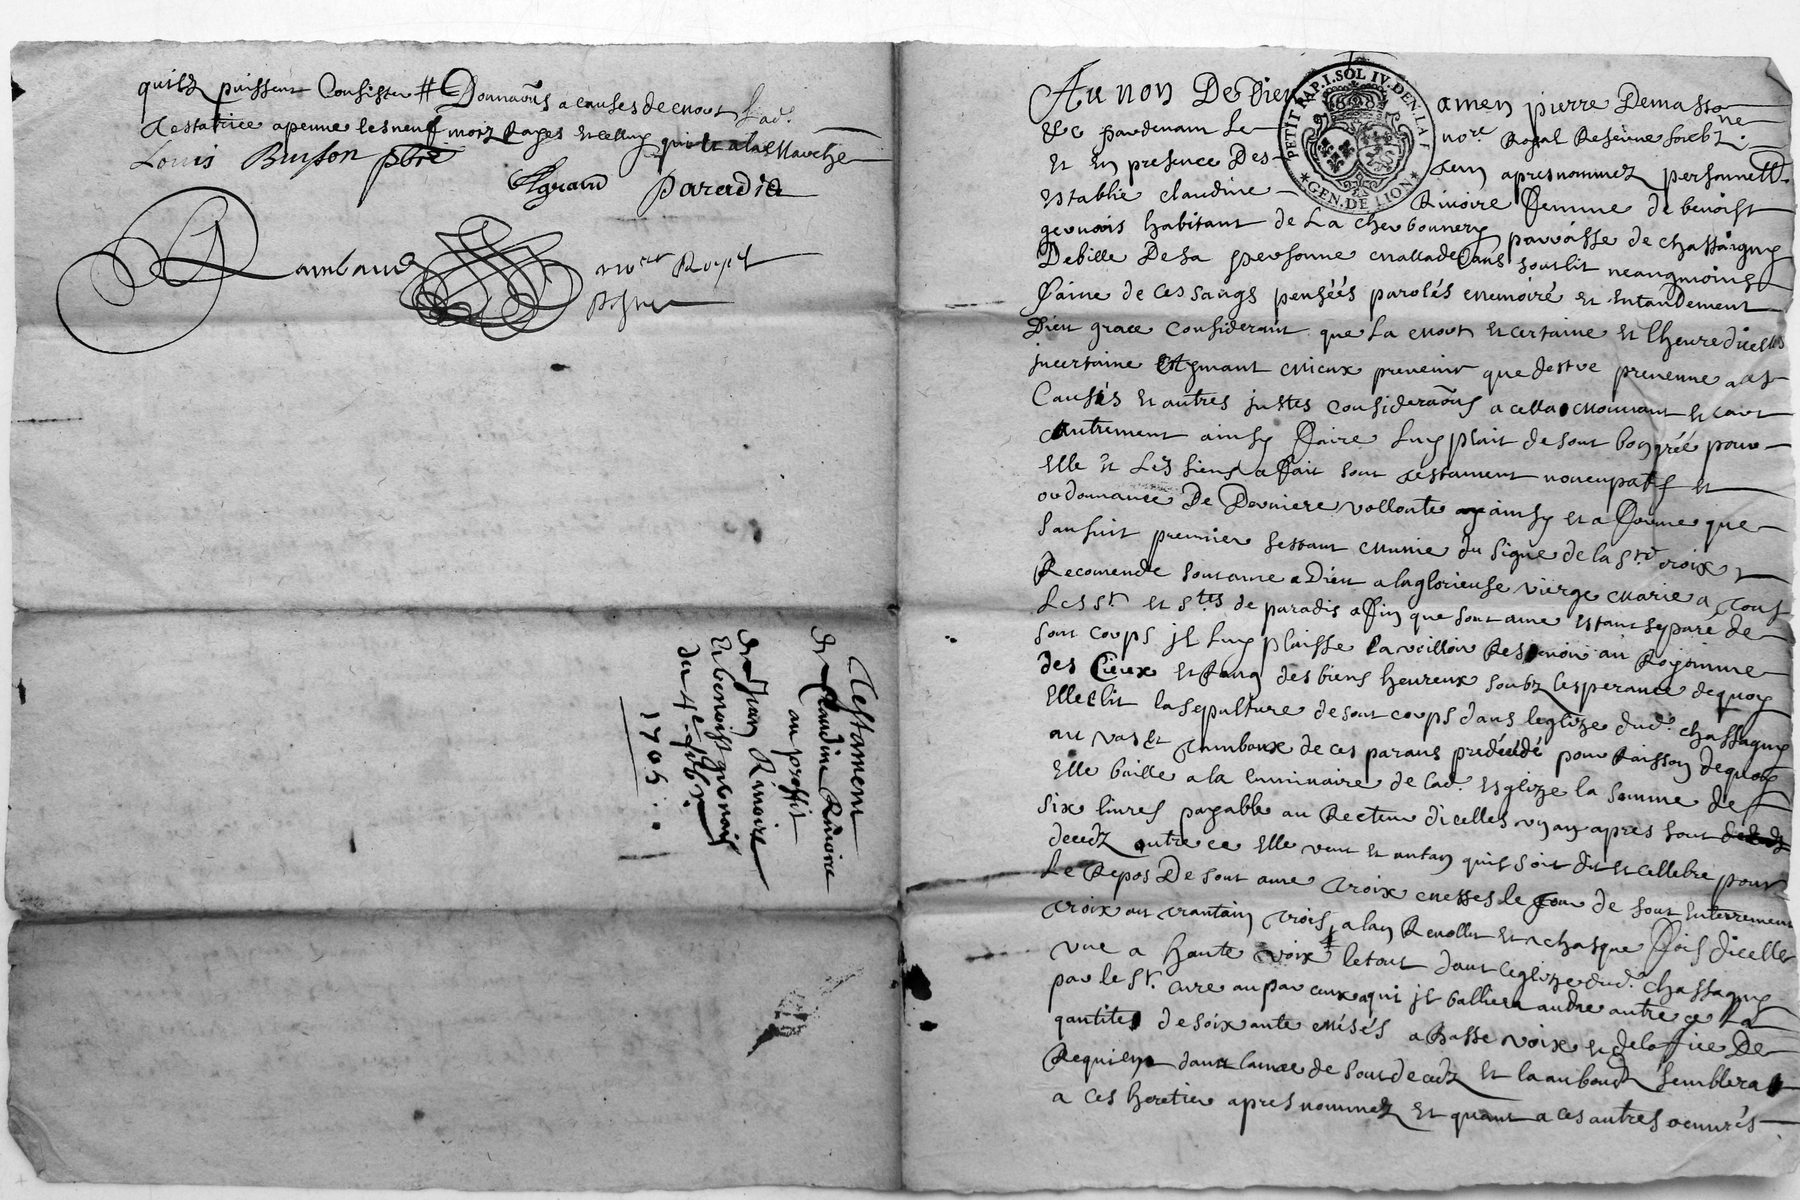 quilz puissent Consister # Donnaons a causes de mort Lad.
Testatrice apeine les neuf mois et celluy
Louis Buisson pbre
Agiraud Paradis
Rambaud no.re Royal
PETIT PAP. I. SOL IV. DEN. LA F
GEN. DE LION
Testament
de Claudine Riuoire
au proffit
de Jean Riuoire
et benoist geunois
du 4e
1705
Au non De Dieu amen pierre Demasso
&c pardeuant Le no.re Royal Reserue soubz.ne
et En presence Des tem apres nommez personnell.
establie claudine Riuoire femme de benoist
geunois habitant de La cherbonnery parroisse de chassaigny
Debille De sa personne mallade dans sont lit neangmoings
saine de ces sangs pensées parolés memoiré et Entandement
Dieu grace Considerant que La mort et certaine et lheure dicelles
jncertaine Estymant mieux preuenir que destre preuenue a ces
Causés et autres justes Consideraons a cella mouuant et car
autrement ainsy faire Luy plait de sont bon gréé pour
Elle et Les siens a fait sont testament noncupatif et
ordonnance De Derniere vollonte ainsy et a forme que
sansuit premier sestant munie du signe de la Ste croix
Recomende sont ame a Dieu a la glorieuse vierge marie a tous
Les St. et Stes de paradis affin que sont ame estant separé de
sont corps jl Luy plaisse la voilloir Resepuoir au Roijaume
des Cieux et Rang des biens heureux soubz lesperance de quoy
Elle elit la sepulture de sont corps dans leglize dud. chassagny
au vas et tombaux de ces parans predecédé pour Raisson de quoy
Elle baille a la luminaire de lad. esglize la somme de
six liures payable au Recteur dicelles vn an apres sont
decedz outre ce elle veut et antan quil soit dit et cellebre pour
Le Repos De sont ame troix messes le jour de sont enterrement
troix au trantain trois a lan Reuollu et a chasque fois dicelles
vne a haute voix le tout dant leglize dud. chassagny
par le Sr. cure au par ceux a qui jl balliera autre ce la
qantites de soixante mésés a basse voix et de loffice De
Requiem dant lannee de sont decedz et la au bont semblera
a ces heretier apres nommez Et quant a ces autres oeuurés